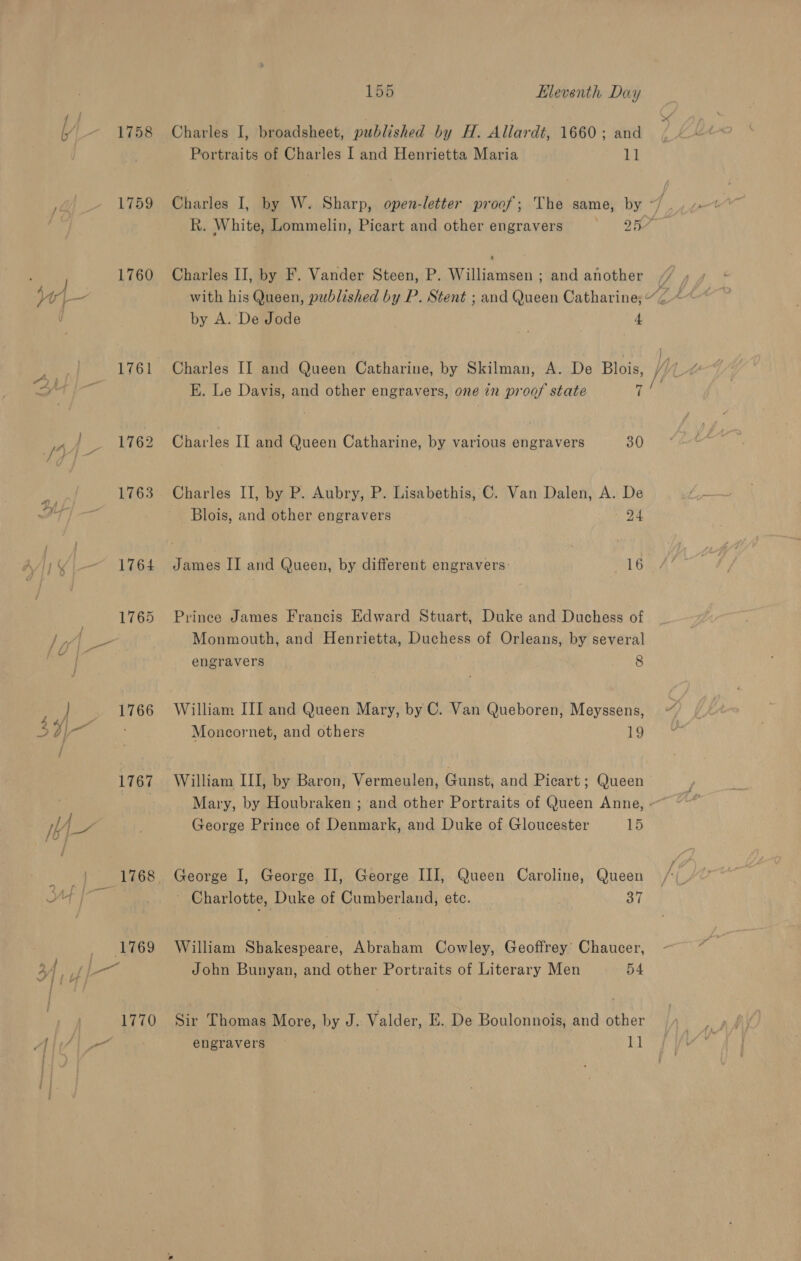 155 Eleventh Day
1758 Charles I, broadsheet, published by H. Allardt, 1660; and
Portraits of Charles I and Henrietta Maria 11
1759 Charles I, by W. Sharp, open-letter proof; The same, by
R. White, Lommelin, Picart and other engravers 25
1760 Charles II, by F. Vander Steen, P. Williamsen ; and another
with his Queen, published by P. Stent ; and Queen Catharine,
by A. De Jode 4
1761 Charles II and Queen Catharine, by Skilman, A. De Blois,
E. Le Davis, and other engravers, one in proof state 7
1762 Charles II and Queen Catharine, by various engravers 30
1763 Charles II, by P. Aubry, P. Lisabethis, C. Van Dalen, A. De
Blois, and other engravers 24
1764 James II and Queen, by different engravers 16
1765 Prince James Francis Edward Stuart, Duke and Duchess of
Monmouth, and Henrietta, Duchess of Orleans, by several
engravers 8
1766 William III and Queen Mary, by C. Van Queboren, Meyssens,
Moncornet, and others 19
1767 William III, by Baron, Vermeulen, Gunst, and Picart; Queen
Mary, by Houbraken ; and other Portraits of Queen Anne,
George Prince of Denmark, and Duke of Gloucester 15
1768 George I, George II, George III, Queen Caroline, Queen
Charlotte, Duke of Cumberland, etc. 37
1769 William Shakespeare, Abraham Cowley, Geoffrey Chaucer,
John Bunyan, and other Portraits of Literary Men 54
1770 Sir Thomas More, by J. Valder, E. De Boulonnois, and other
engravers 11